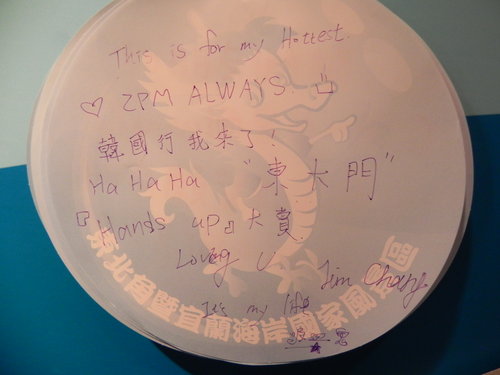 This is for my Hottest.
♡ 2PM ALWAYS
韓國行我來了!
Ha Ha Ha "東大門"
『Hands up』大賣
Loving U. Jim Chang
It's my life
東北角暨宜蘭海岸國家風景區